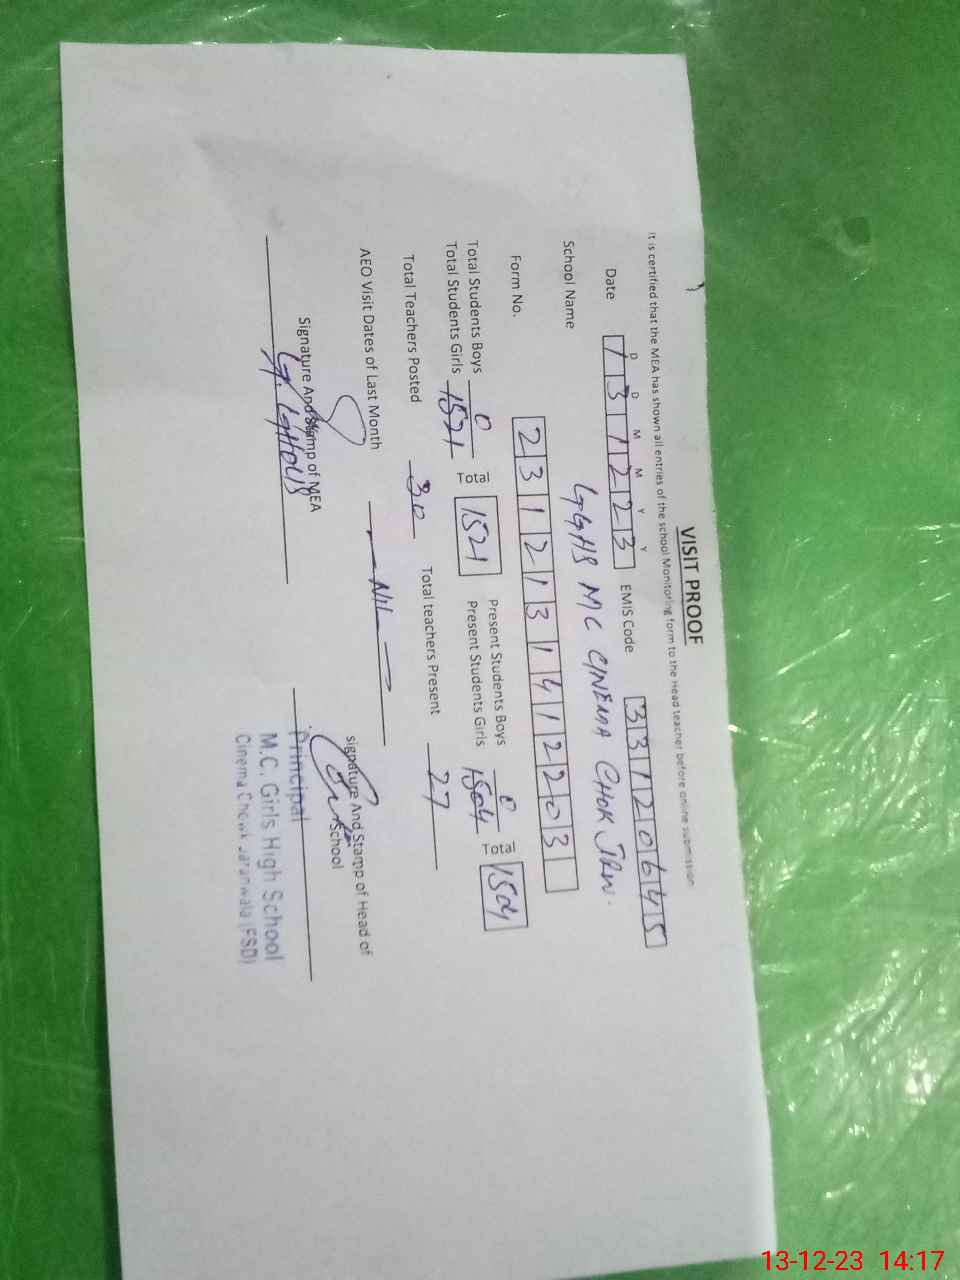 VISIT PROOF
It is certified that the MEA has shown all entries of the school Monitoring form to the Head teacher before online submission
D D M M Y Y
Date 1 3 1 2 2 3 EMIS Code 3 3 1 2 0 6 4 5
School Name GGHS MC CINEMA CHOK JRW.
Form No. 2 3 1 2 1 3 1 4 1 2 2 0 3
Total Students Boys 0 Present Students Boys 0
Total Students Girls 1521 Total 1521 Present Students Girls 1504 Total 1504
Total Teachers Posted 30 Total teachers Present 27
AEO Visit Dates of Last Month - NIL -
Signature And Stamp of MEA signature And Stamp of Head of
School
Principal
M.C. Girls High School
Cinema Chowk Jaranwala (FSD)
13-12-23 14:17